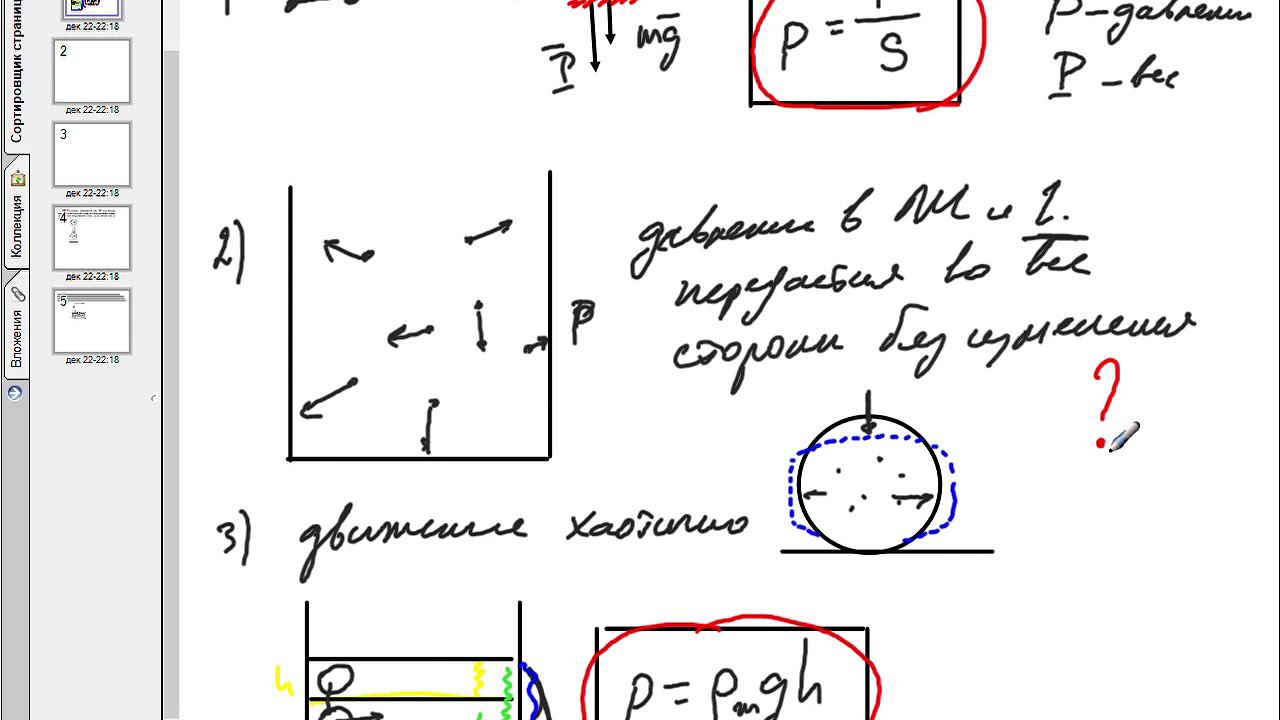 Сортировщик страниц
Коллекция
Вложения
дек 22-22:18
2
дек 22-22:18
3
дек 22-22:18
4
дек 22-22:18
5
дек 22-22:18
mg
P
p = / S
p - давлении
P - вес
2)
P
давлении в ж и г.
передаётся во все
стороны без изменения
?
3) движение хаотично
h
p = ρжgh